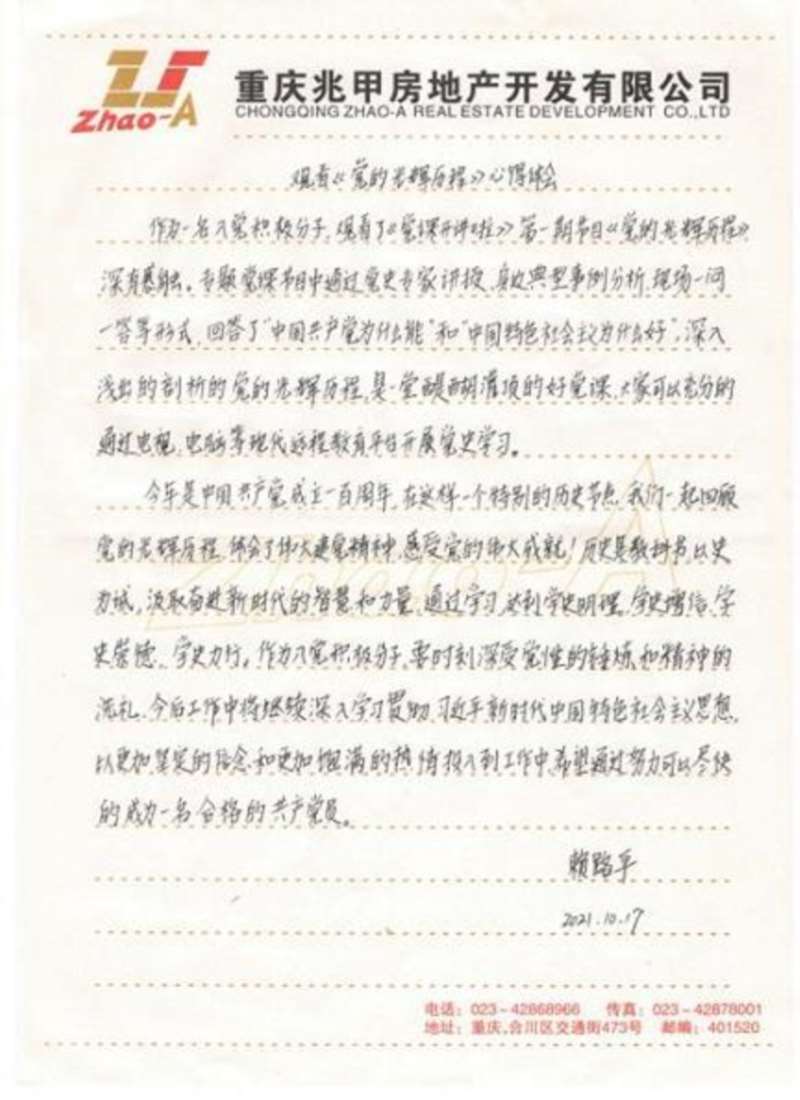 Zhao-A
重庆兆甲房地产开发有限公司
CHONGQING ZHAO-A REAL ESTATE DEVELOPMENT CO.,LTD
观看《党的光辉历程》心得体会
作为一名入党积极分子,观看了《党课开讲啦》第一期节目《党的光辉历程》
深有感触。专题党课节目中通过党史专家讲授,身边典型事例分析,现场一问
一答等形式,回答了“中国共产党为什么能”和“中国特色社会主义为什么好”,深入
浅出的剖析的党的光辉历程,是一堂醍醐灌顶的好党课,大家可以充分的
通过电视、电脑等现代远程教育平台开展党史学习。
今年是中国共产党成立一百周年,在这样一个特别的历史节点,我们一起回顾
党的光辉历程,体会了伟大建党精神,感受党的伟大成就!历史是教科书,以史
为诫,汲取奋进新时代的智慧和力量,通过学习达到学史明理、学史增信、学
史崇德、学史力行。作为入党积极分子,要时刻深受党性的锤炼和精神的
洗礼,今后工作中将继续深入学习贯彻习近平新时代中国特色社会主义思想,
以更加坚定的信念和更加饱满的热情投入到工作中,希望通过努力可以尽快
的成为一名合格的共产党员。
赖路平
2021.10.17
电话:023-42868966 传真:023-42878001
地址:重庆,合川区交通街473号 邮编:401520